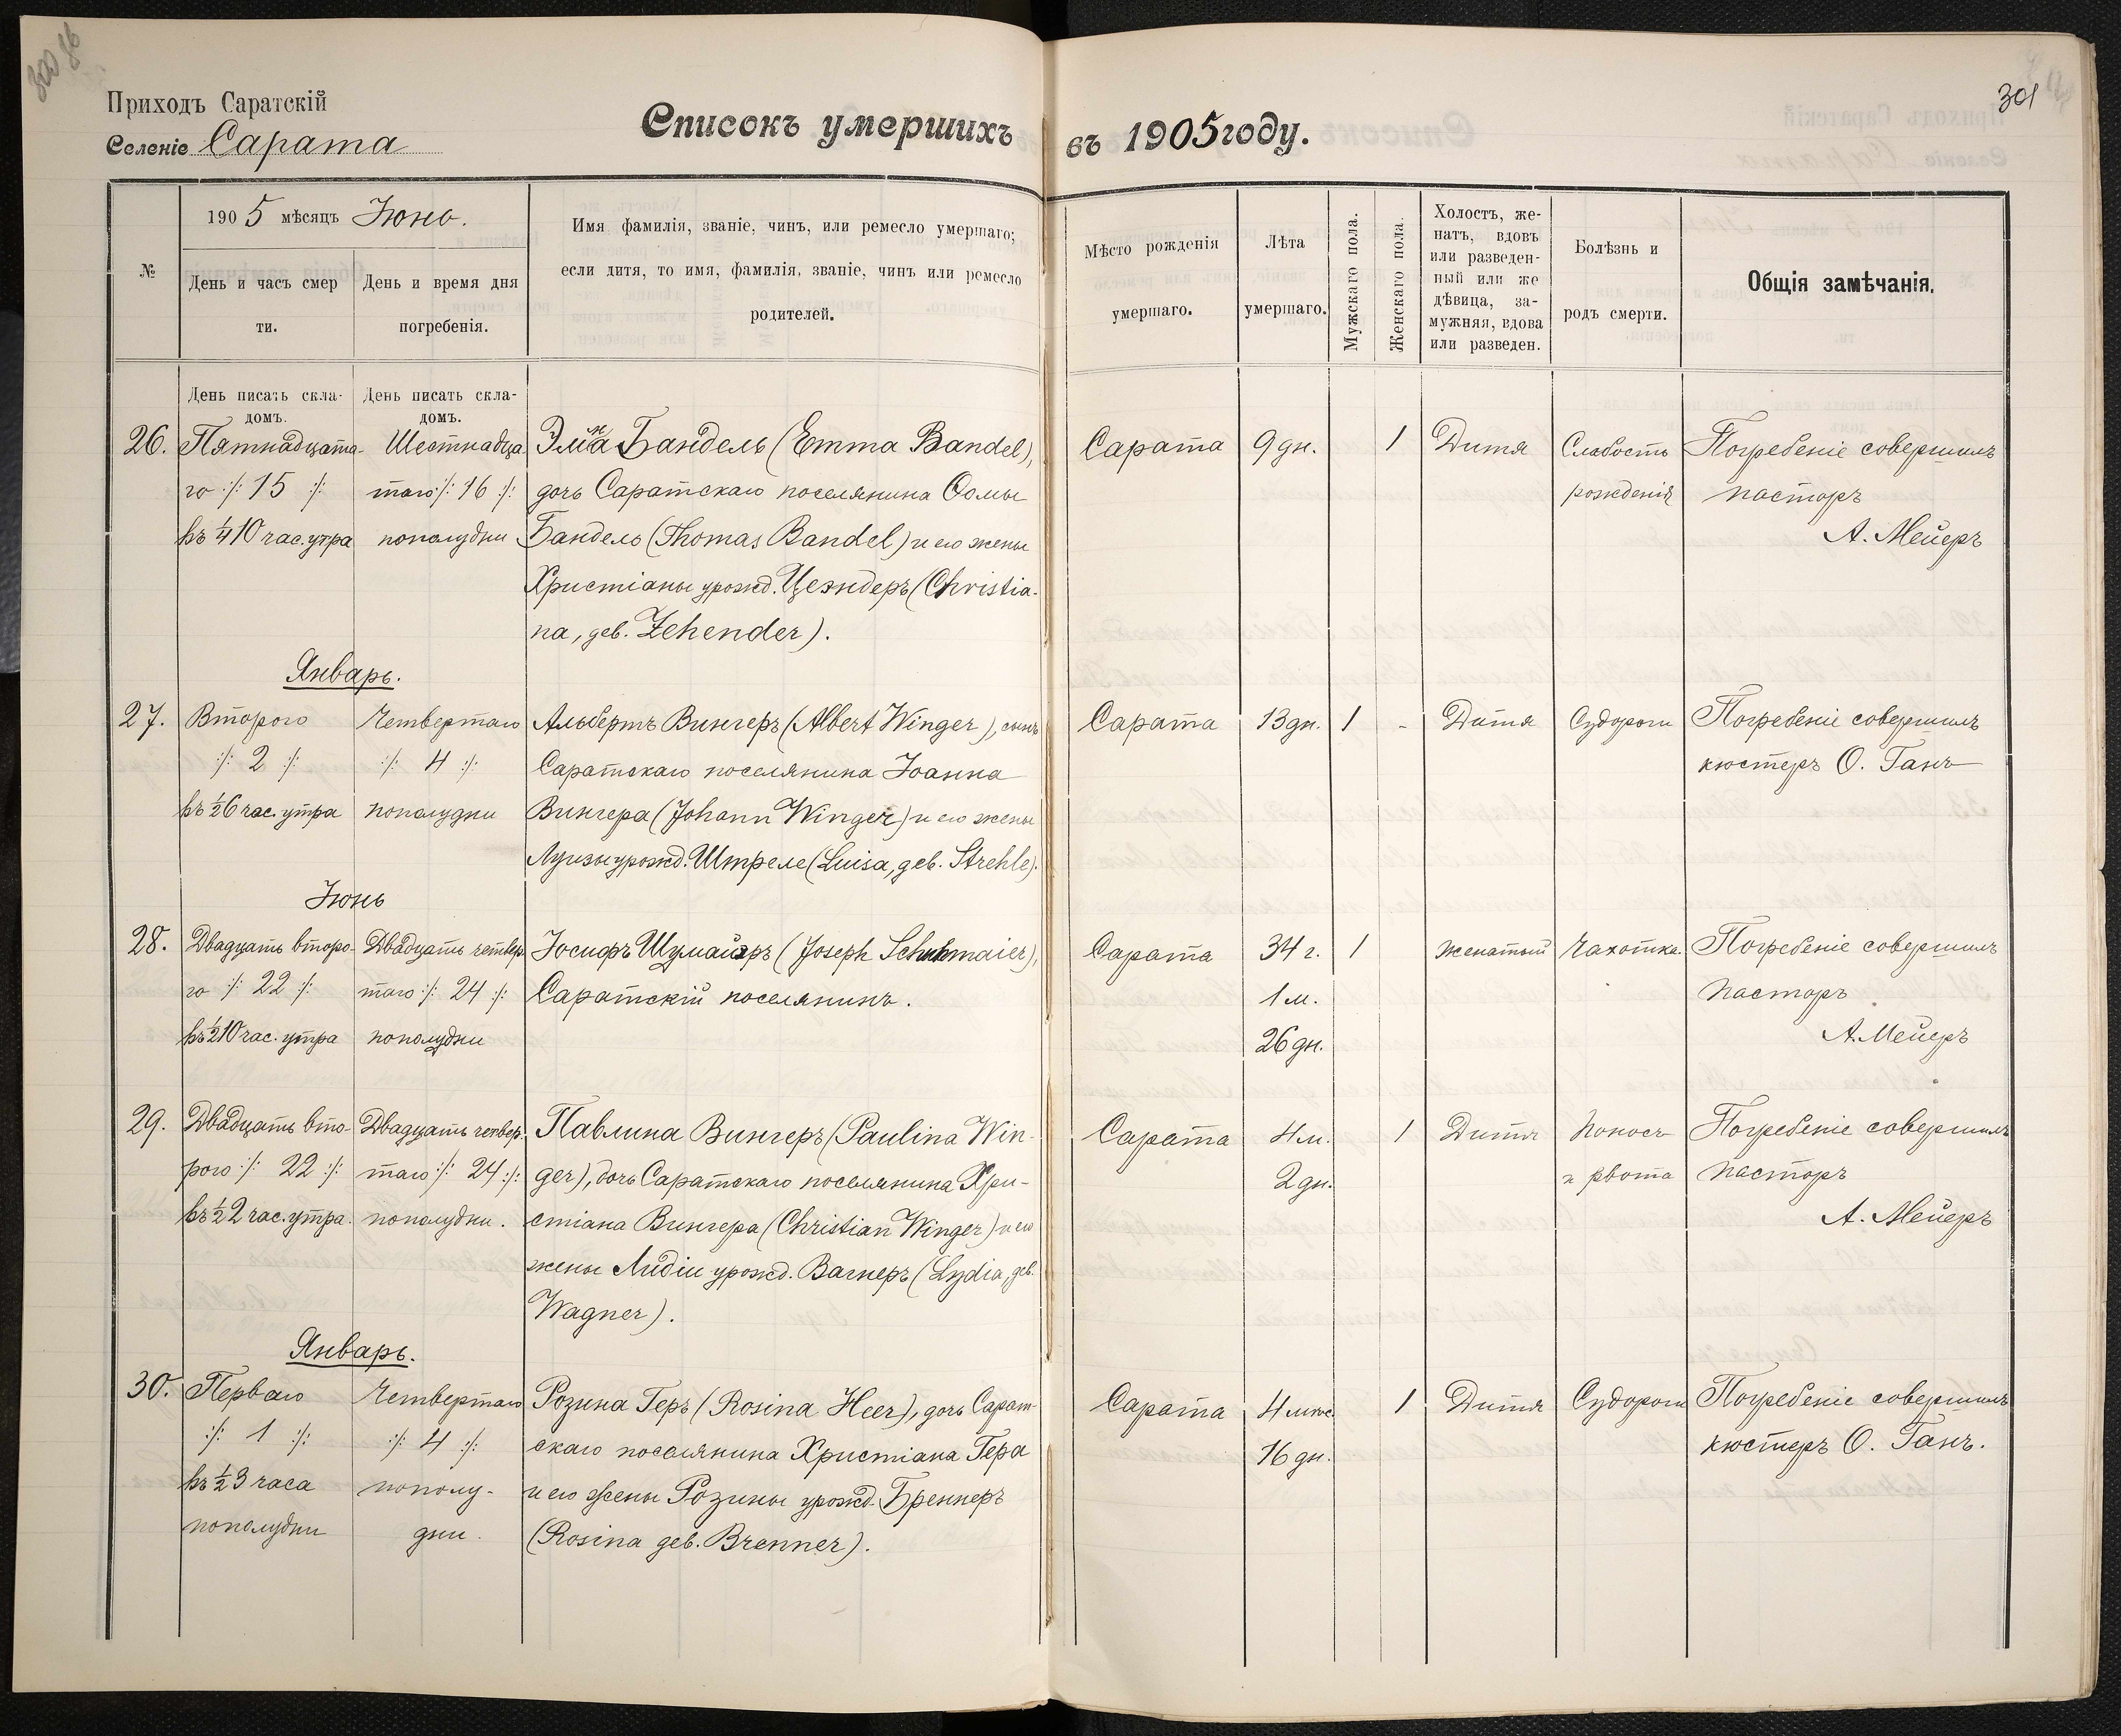 Приходъ Саратскій
Селеніе Сарата
Списокъ умершихъ въ 1905 году.
301
№
1905 мѣсяцъ Іюнь.
День и часъ смер
ти.
День и время дня
погребенія.
Имя фамилія, званіе, чинъ, или ремесло умершаго;
если дитя, то имя, фамилія, званіе, чинъ или ремесло
родителей.
Мѣсто рожденія
умершаго.
Лѣта
умершаго.
Мужскаго пола.
Женскаго пола.
Холостъ, же-
натъ, вдовъ
или разведен-
ный или же
дѣвица, за-
мужняя, вдова
или разведен.
Болѣзнь и
родъ смерти.
Общія замѣчанія.
День писать скла-
домъ.
День писать скла-
домъ.
26.
Пятнадцата-
го :/: 15 :/:
въ ¼10 час. утра
Шестнадца
таго :/: 16 :/:
пополудни
Эмма Бандель (Emma Bandel),
дочь Саратскаго поселянина Ѳомы
Бандель (Thomas Bandel) и его жены
Христіаны урожд. Цеэндеръ (Christia-
na, geb. Zehender).
Сарата
9 дн.
1
Дитя
Слабость
рожденія
Погребеніе совершилъ
пасторъ
А. Мейеръ
Январь.
27.
Второго
:/: 2 :/:
въ ½6 час. утра
Четвертаго
:/: 4 :/:
пополудни
Альбертъ Вингеръ (Albert Winger), сынъ
Саратскаго поселянина Іоанна
Вингера (Johann Winger) и его жены
Луизы урожд. Штреле (Luisa, geb. Strehle).
Сарата
13 дн.
1
-
Дитя
Судороги
Погребеніе совершилъ
кюстеръ О. Ганъ
Іюнь
28.
Двадцать второ-
го :/: 22 :/:
въ ½10 час. утра
Двадцать четвер.
таго :/: 24 :/:
пополудни
Іосифъ Шумайэръ (Joseph Schuhmaier),
Саратскій поселянинъ.
Сарата
34 г.
1 м.
26 дн.
1
женатый
Чахотка.
Погребеніе совершилъ
пасторъ
А. Мейеръ
29.
Двадцать вто-
рого :/: 22 :/:
въ ½2 час. утра.
Двадцать четвер.
таго :/: 24 :/:
пополудни.
Павлина Вингеръ (Paulina Win-
ger), дочь Саратскаго поселянина Хри-
стіана Вингера (Christian Winger) и его
жены Лидіи урожд. Вагнеръ (Lydia, geb.
Wagner).
Сарата
4 м.
2 дн.
1
Дитя
Поносъ
и рвота
Погребеніе совершилъ
пасторъ
А. Мейеръ
Январь.
30.
Перваго
:/: 1 :/:
въ ½3 часа
пополудни
Четвертаго
:/: 4 :/:
пополу-
дни.
Розина Геръ (Rosina Heer), дочь Сарат-
скаго поселянина Христіана Гера
и его жены Розины урожд. Бреннеръ
(Rosina geb. Brenner).
Сарата
4 мѣс.
16 дн.
1
Дитя
Судороги
Погребеніе совершилъ
кюстеръ О. Ганъ.